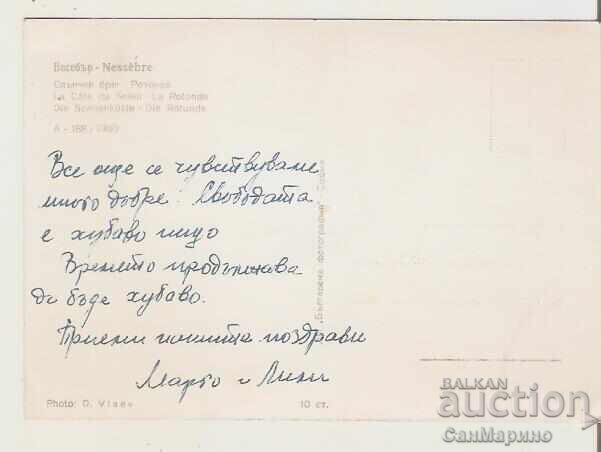 Несебър - Nessèbre
Слънчев бряг Ротонда
La Côte du Soleil La Rotonde
Die Sonnenküste - Die Rotunde
A - 1960
Все още се чувствуваме
много добре. Свободата
е хубаво нещо
Времето продължава
да бъде хубаво.
Приеми нашите поздрави
Марго и Лили
„Българска фотография“ София
Photo: D. Vlaev
10 ст.
BALKAN
auction
СанМарино